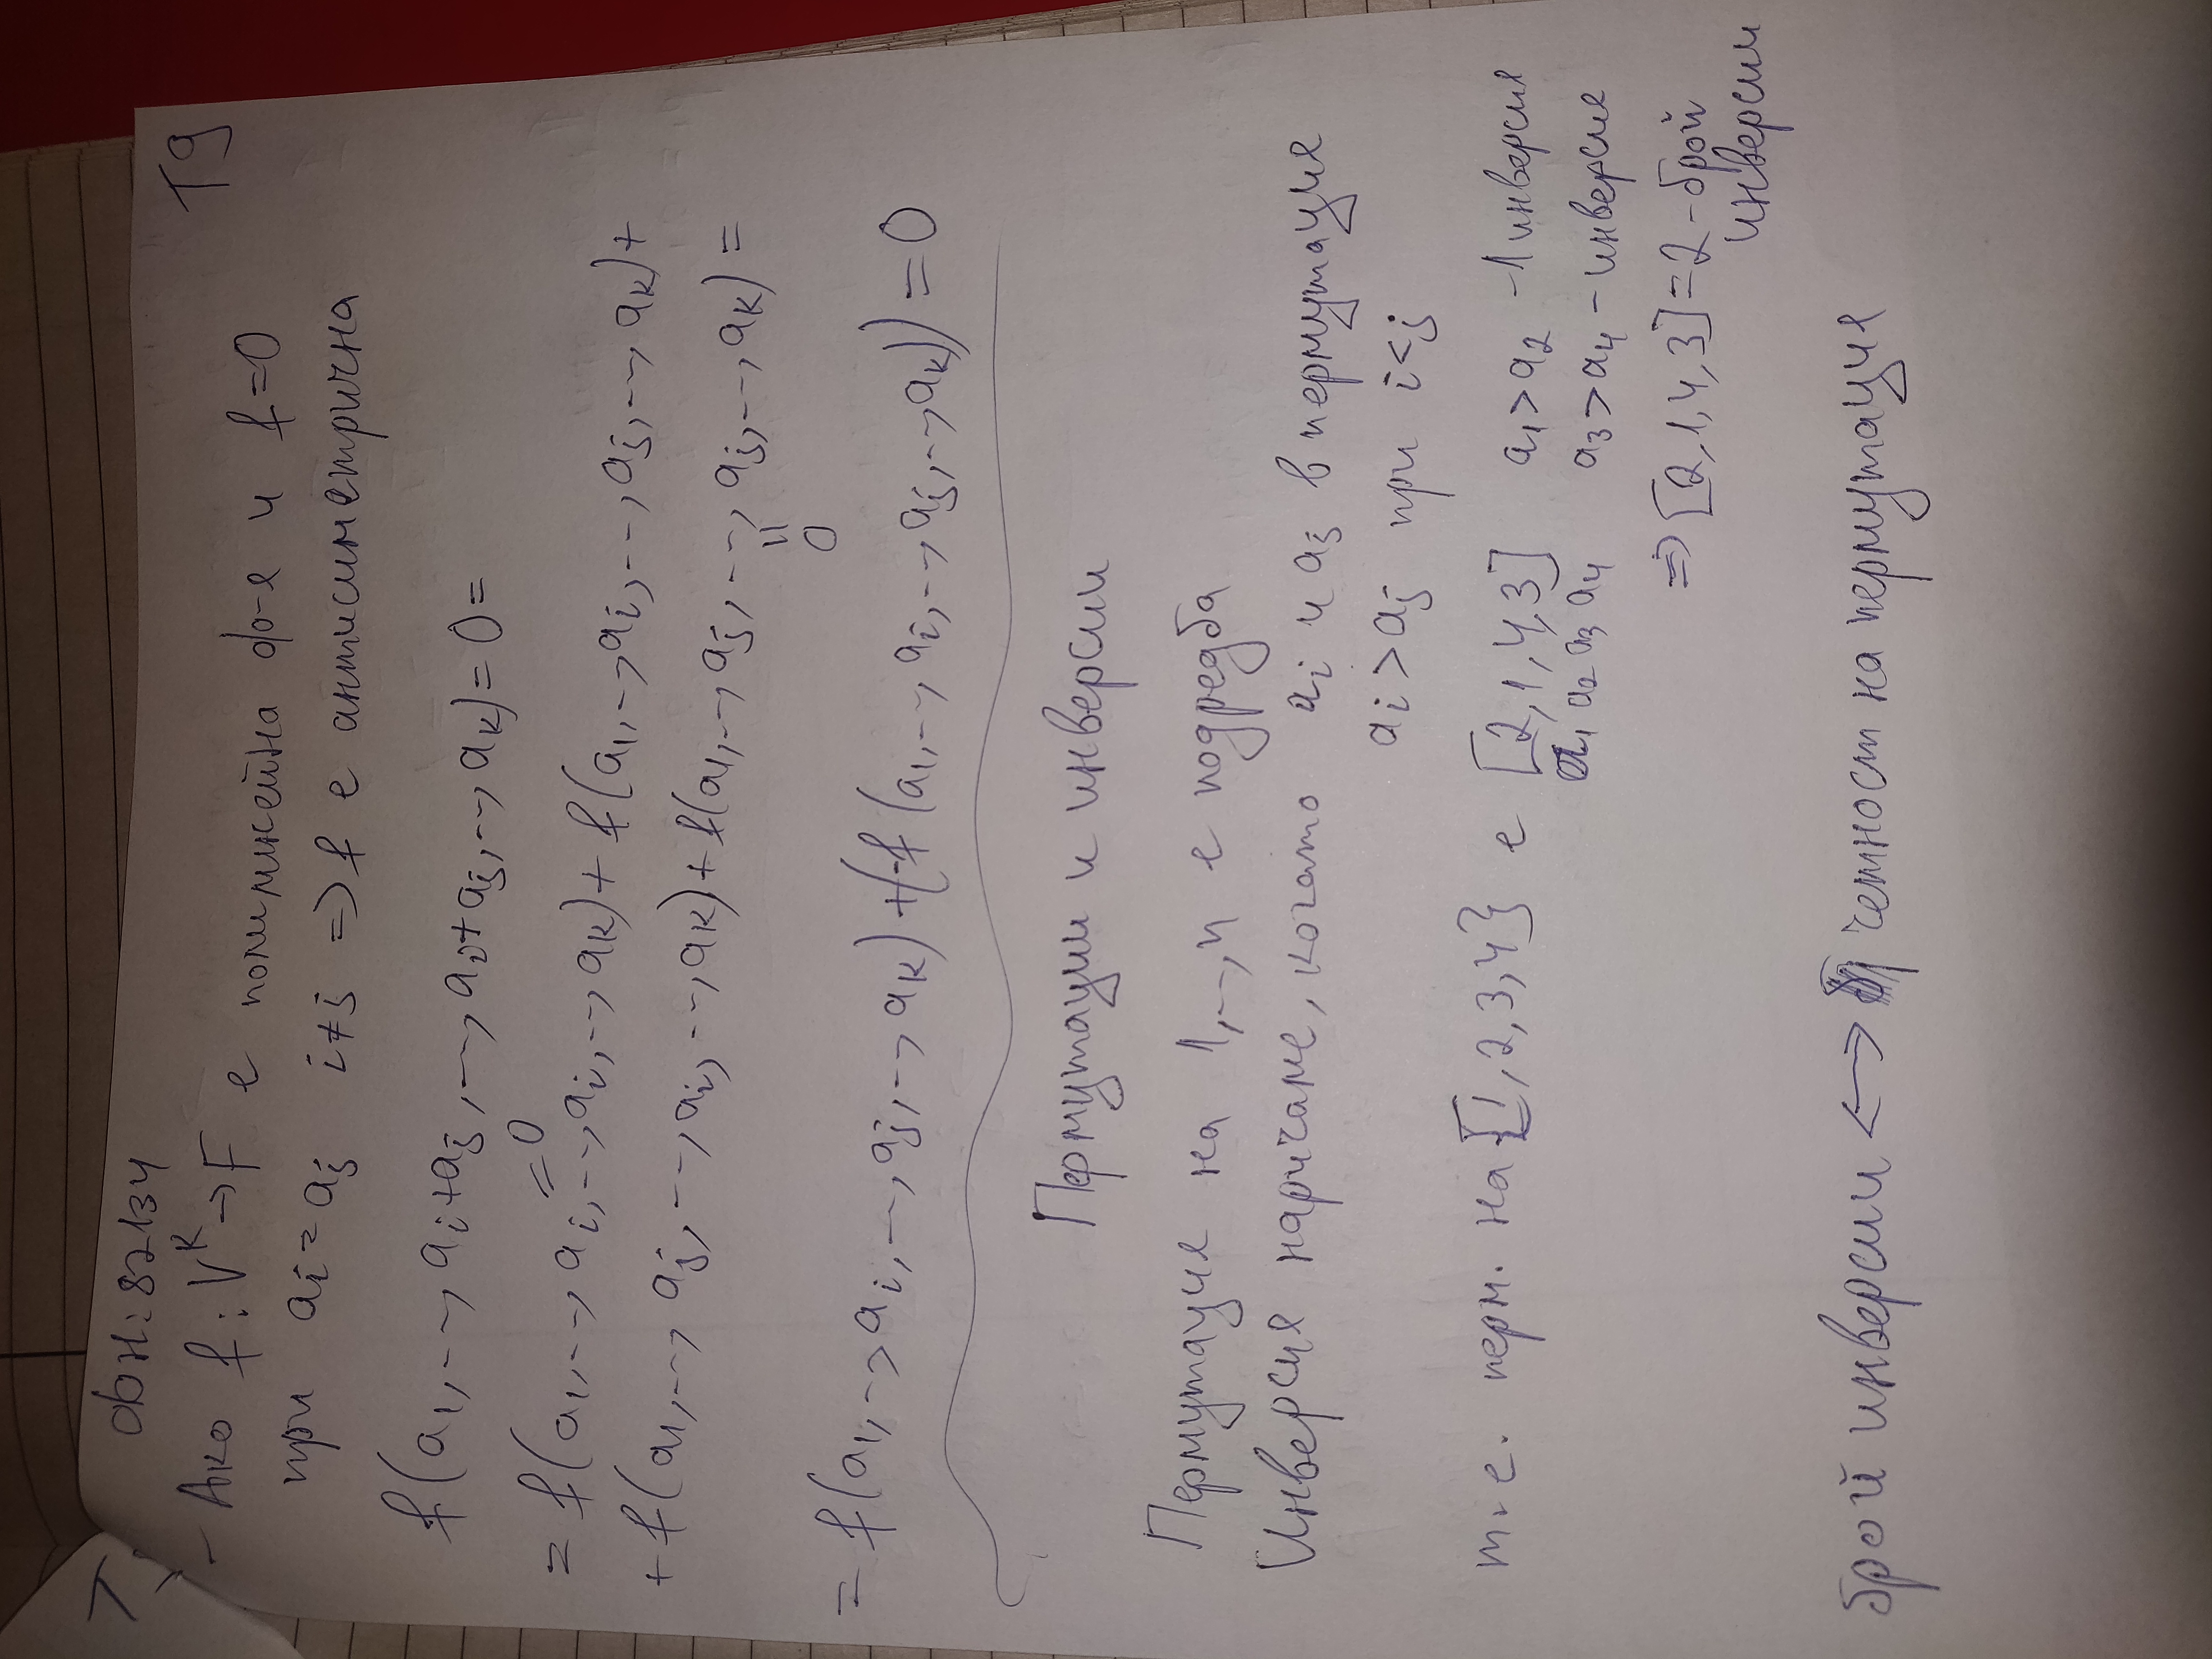 фн: 82134
T9
- Ако f: V^k → F е полилинейна ф-я и f=0
при ai = aj i≠j => f е антисиметрична
f(a1, --, ai+aj, --, ai+aj, --, ak) = 0 =
= f(a1, --, ai, --, ai, --, ak) + f(a1, --, ai, --, aj, --, ak) +
=0
+ f(a1, --, aj, --, ai, --, ak) + f(a1, --, aj, --, aj, --, ak) =
=
0
= f(a1, --, ai, --, aj, --, ak) + (-f(a1, --, ai, --, aj, --, ak)) = 0
Пермутации и инверсии
Пермутация на 1, --, n е подредба
Инверсия наричаме, когато ai и aj в пермутация
ai > aj при i<j
т.е. перм. на {1, 2, 3, 4} е [2, 1, 4, 3] a1 > a2 - 1 инверсия
a1 a2 a3 a4 a3 > a4 - инверсия
=> [2, 1, 4, 3] = 2 - брой
инверсии
брой инверсии <-> четност на пермутация